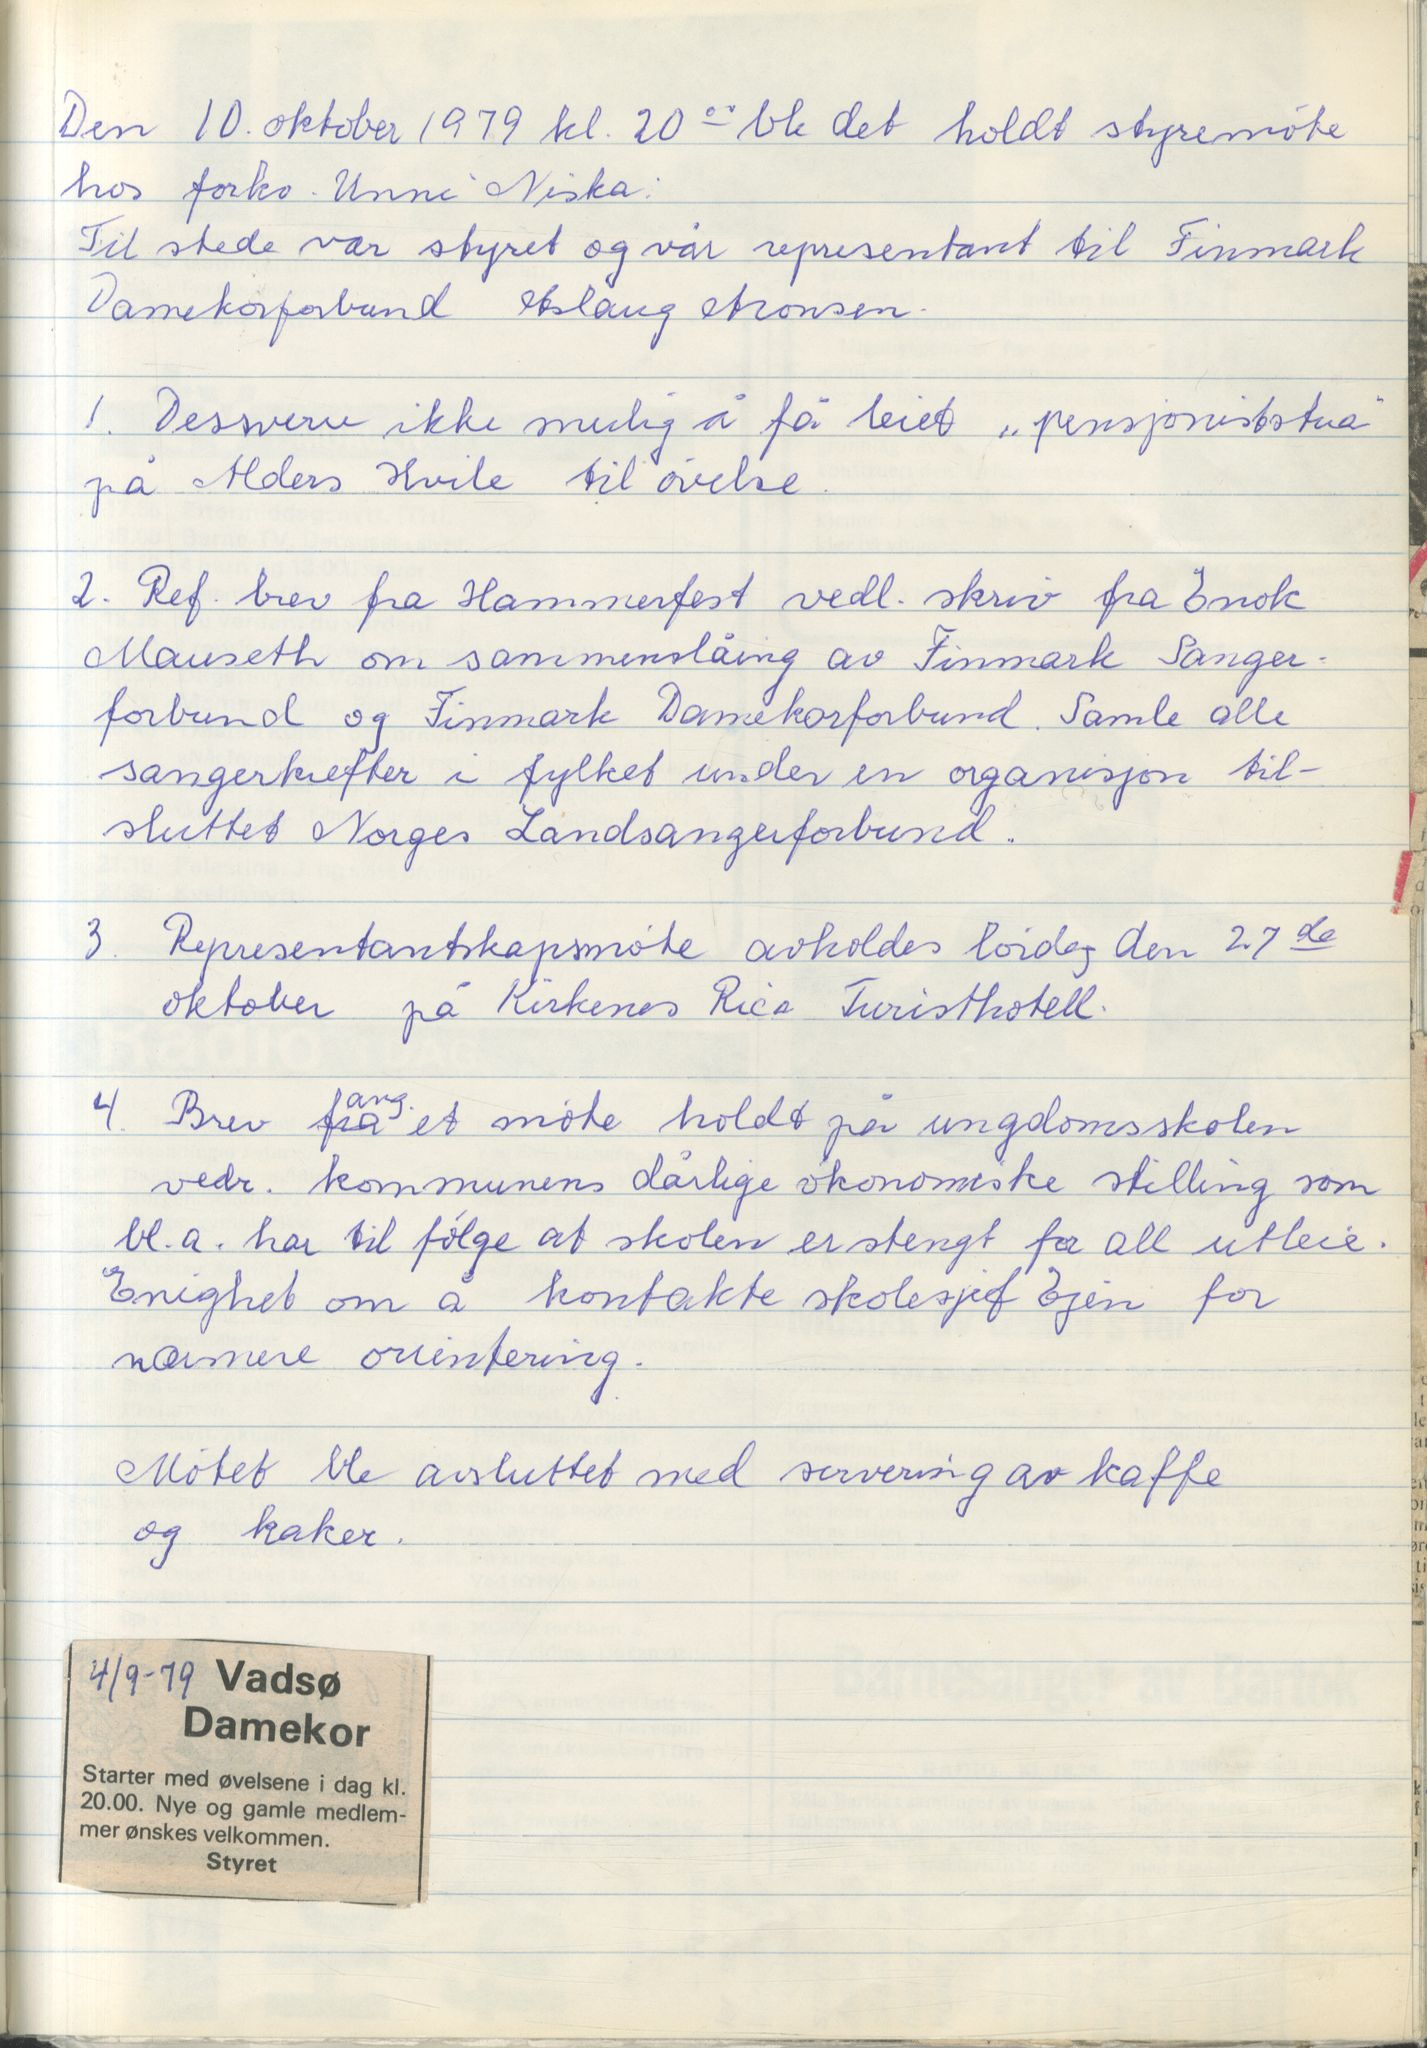 Den 10. oktober 1979 kl. 20⁰⁰ ble det holdt styremöte
hos forkv. Unni Niska.
Til stede var styret og vår representant til Finmark
Damekorforbund Aslaug Aronsen.
1. Dessverre ikke mulig å få leiet „pensjoniststua"
på Alders Hvile til övelse.
2. Ref. brev fra Hammerfest vedl. skriv fra Enok
Mauseth om sammenslåing av Finmark Sanger-
forbund og Finmark Damekorforbund. Samle alle
sangerkrefter i fylket under en organisjon til-
sluttet Norges Landsangerforbund.
3. Representantskapsmöte avholdes lördag den 27de
oktober på Kirkenes Rica Turisthotell.
4. Brev fra ang. et möte holdt på ungdomsskolen
vedr. kommunens dårlige ökonomiske stilling som
bl.a. har til fölge at skolen er stengt for all utleie.
Enighet om å kontakte skolesjef Ejen for
nærmere orientering.
Mötet ble avsluttet med servering av kaffe
og kaker.
4/9-79 Vadsø
Damekor
Starter med øvelsene i dag kl.
20.00. Nye og gamle medlem-
mer ønskes velkommen.
Styret